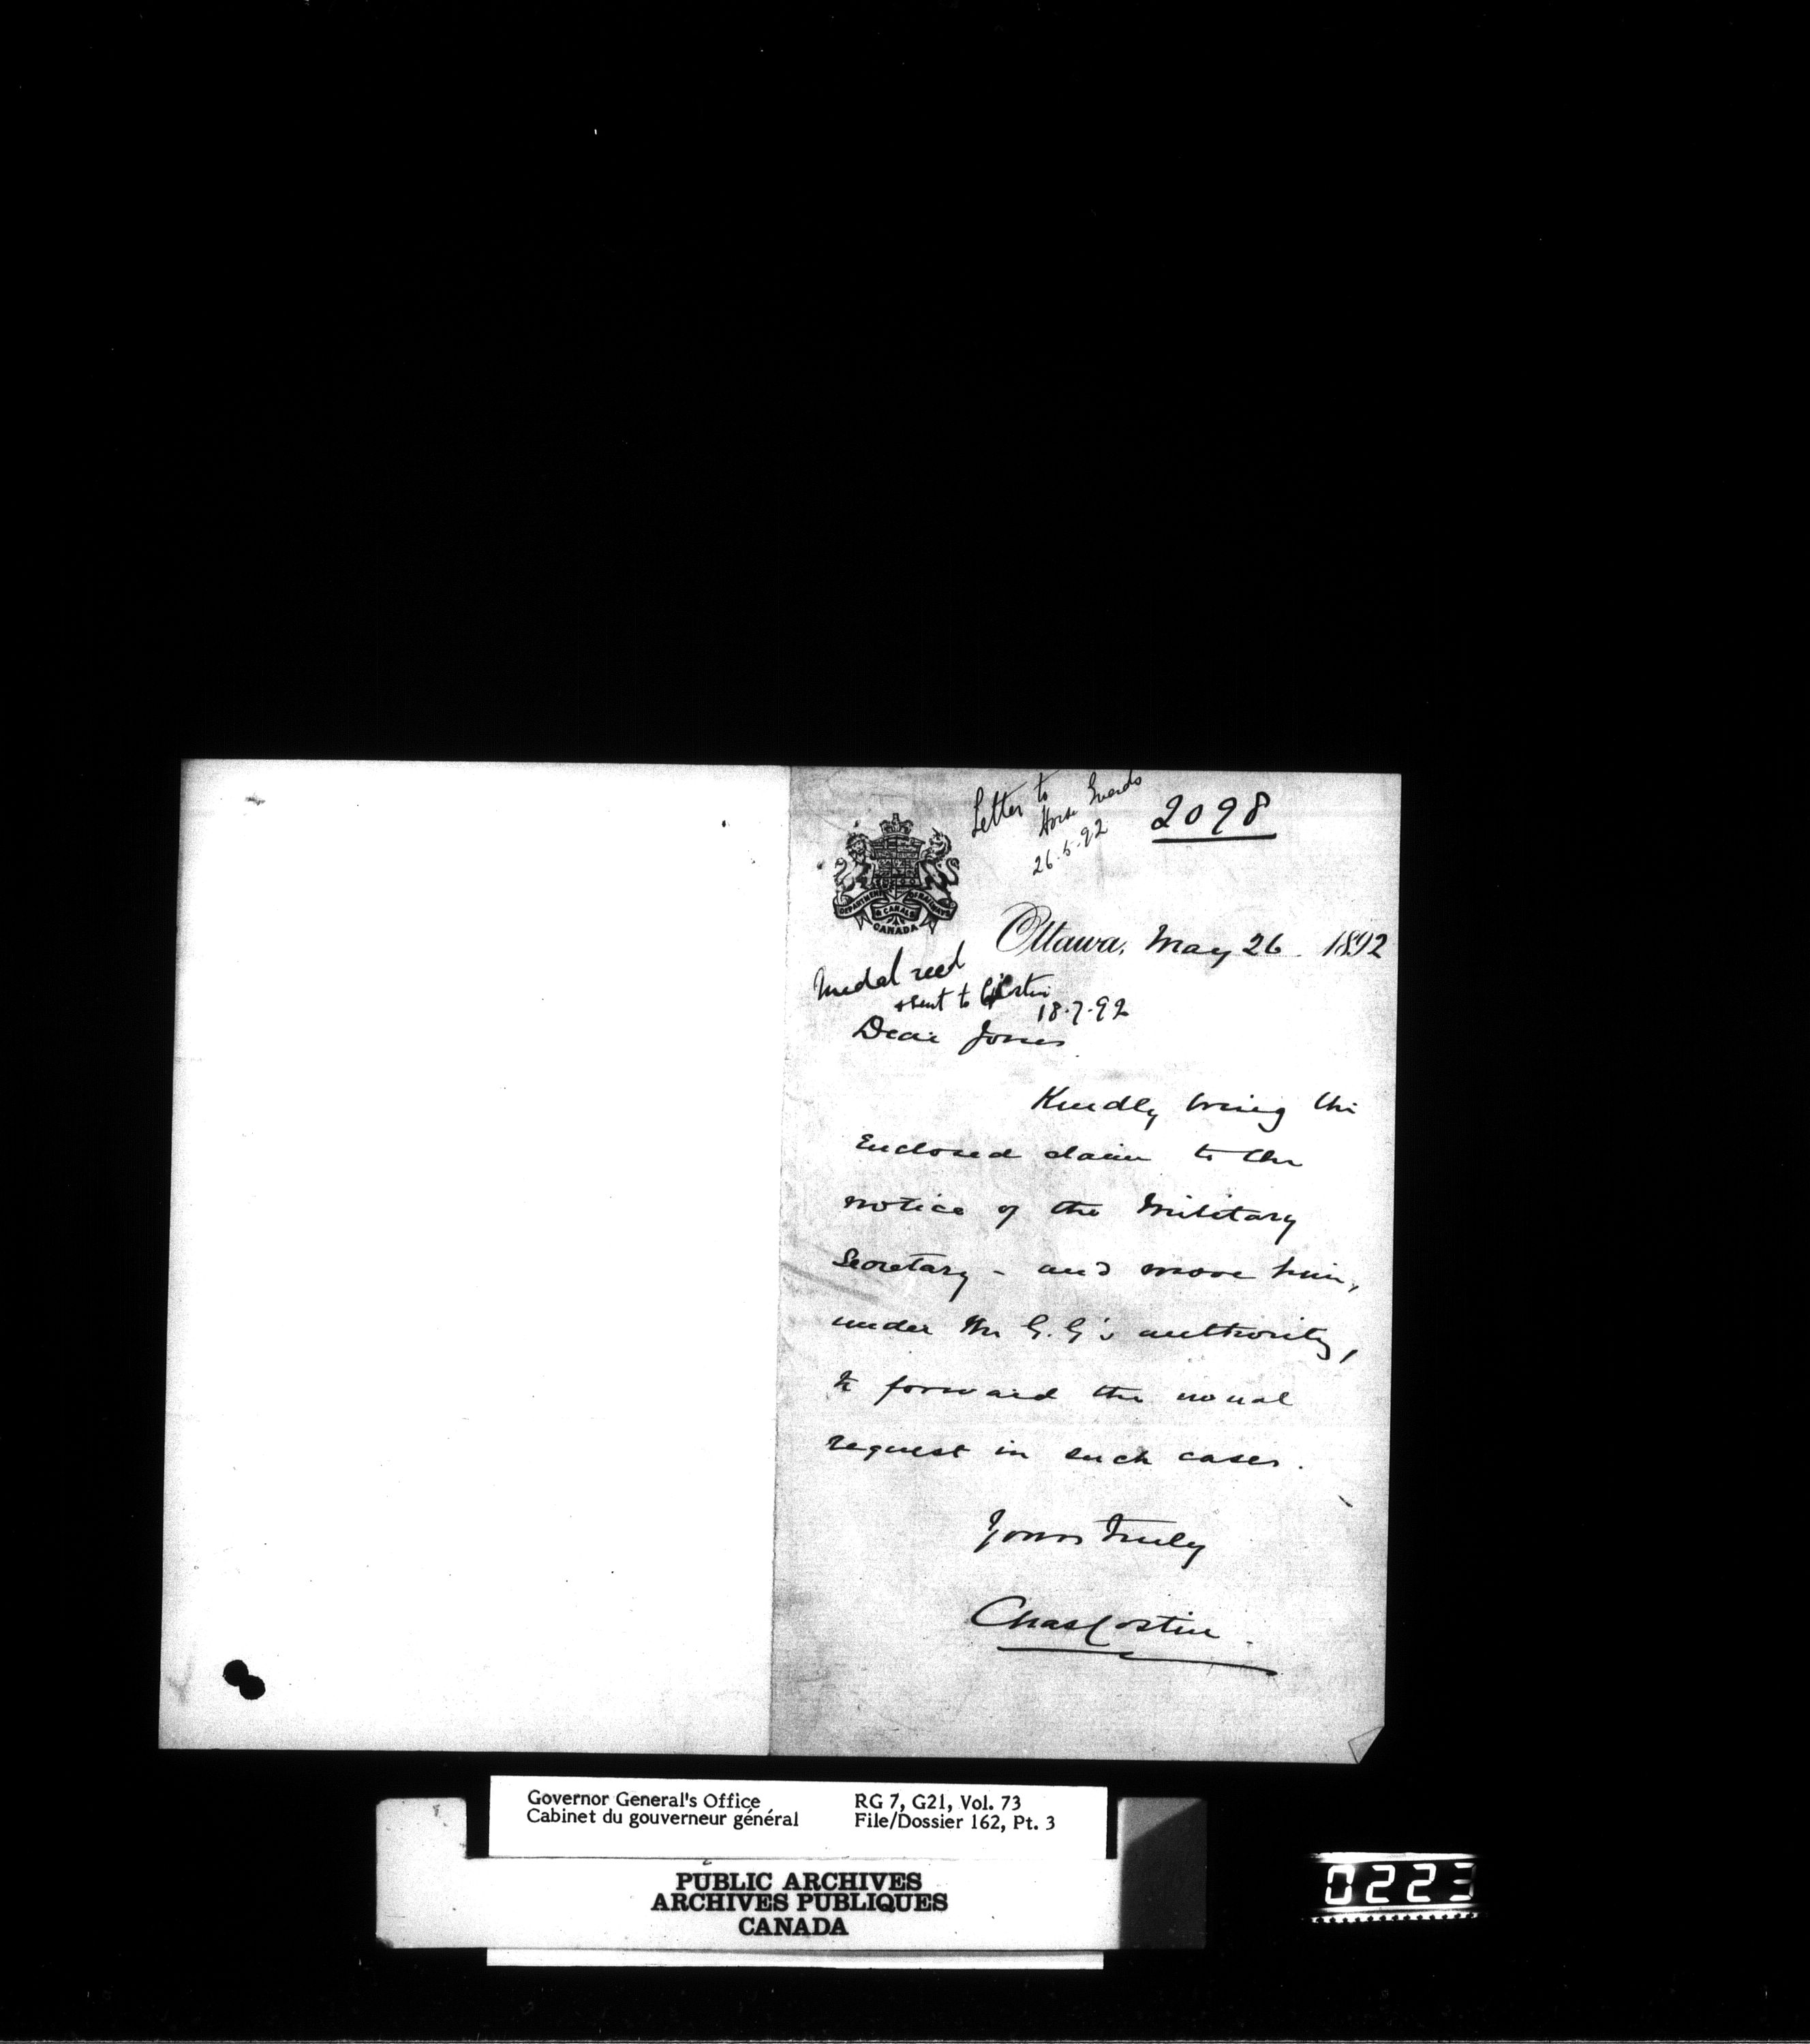 Letter to
Horse Guards
26.5.92
2098
DEPARTMENT OF RAILWAYS
& CANALS
CANADA
Ottawa, May 26. 1892
Medal recd
& sent to Costin
18.7.92
Dear Jones
Kindly bring the
Enclosed claim to the
notice of the Military
Secretary - and move him,
under the G.G's authority,
to forward the usual
request in such cases.
Yours truly
Chas Costin.
Governor General's Office
Cabinet du gouverneur général
RG 7, G21, Vol. 73
File/Dossier 162, Pt. 3
PUBLIC ARCHIVES
ARCHIVES PUBLIQUES
CANADA
0223